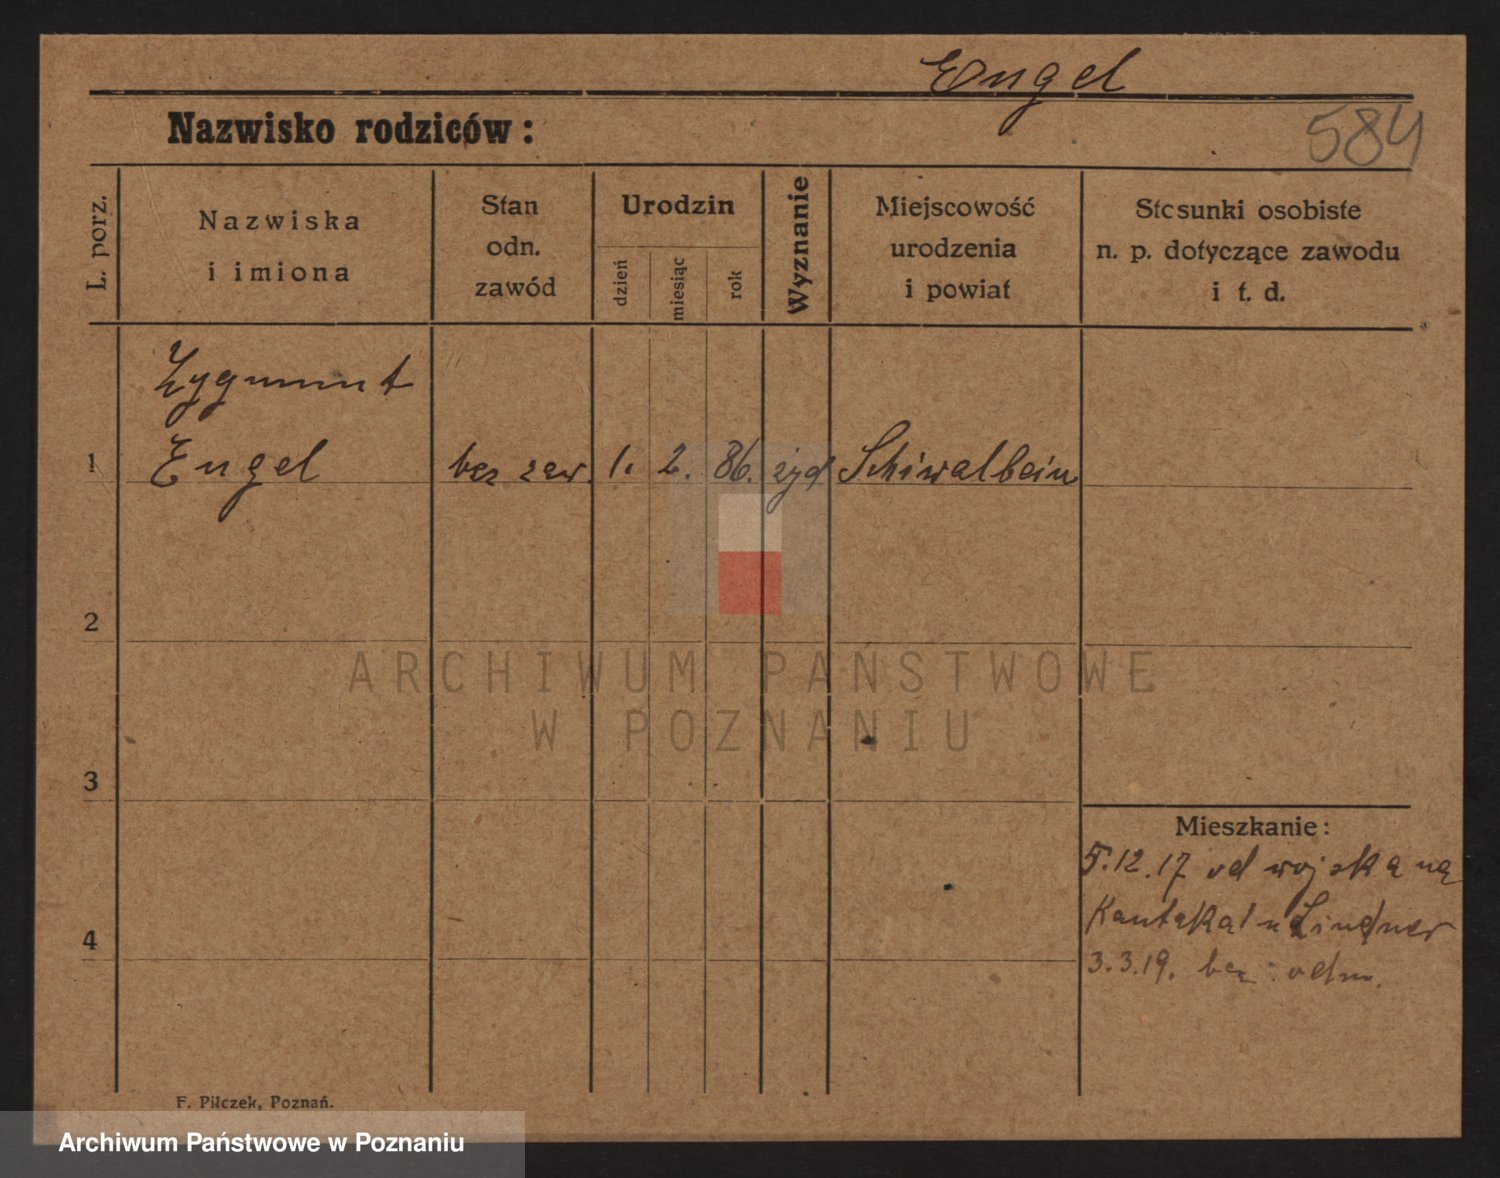 Engel
584
Nazwisko rodziców :
L. porz.
Nazwiska
i imiona
Stan
odn.
zawód
Urodzin
dzień
miesiąc
rok
Wyznanie
Miejscowość
urodzenia
i powiat
Stosunki osobiste
n. p. dotyczące zawodu
i t. d.
Zygmunt
1 Engel bez zaw. 1. 2. 86. żyd Schiwalbein
2
ARCHIWUM PAŃSTWOWE
W POZNANIU
3
Mieszkanie :
5.12.17 od wojska na
Kantaka 1 u Lindner
4
3.3.19. bez odm.
F. Pilczek, Poznań.
Archiwum Państwowe w Poznaniu